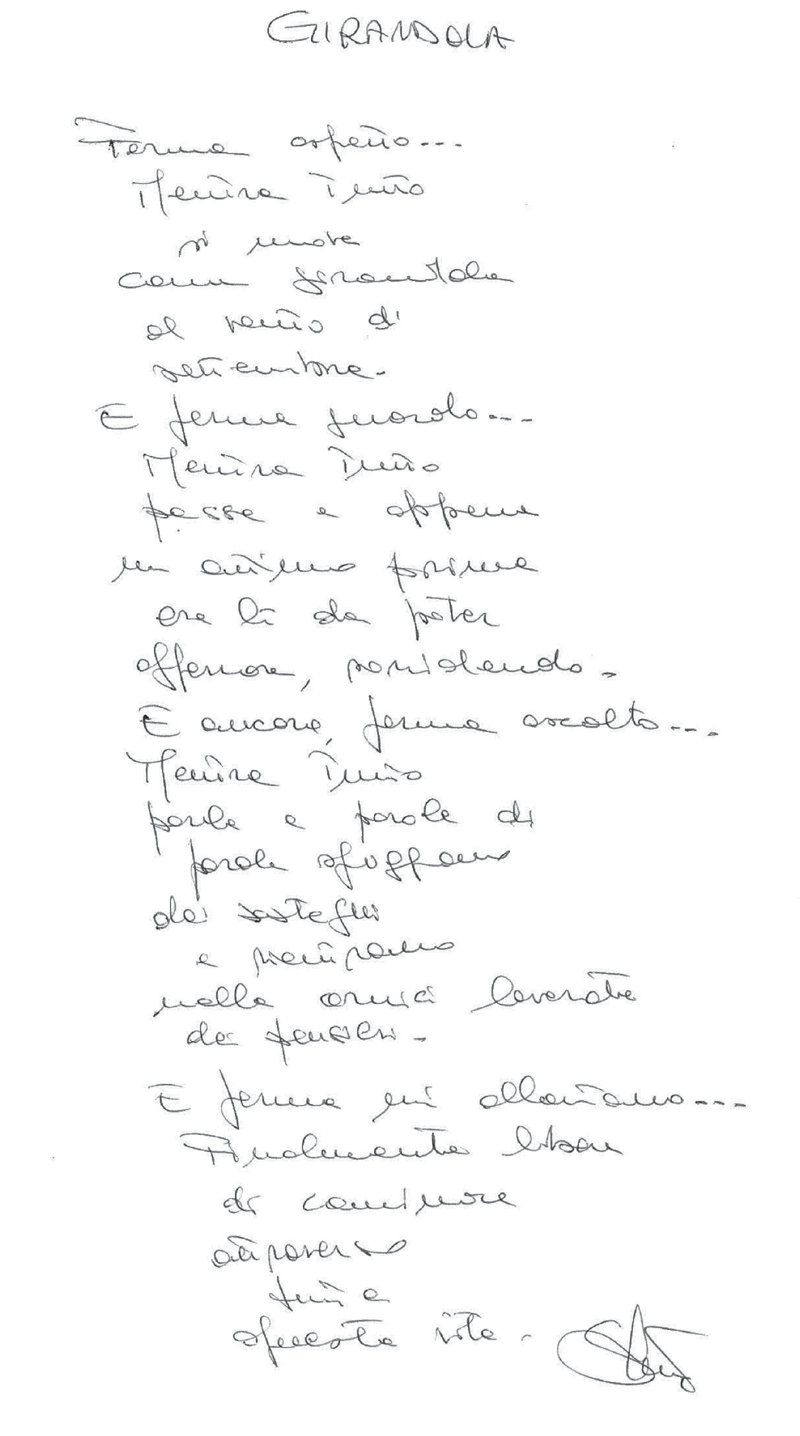 GIRANDOLA
Ferma aspetto...
Mentre Tutto
si muove
come girandola
al vento di
settembre.
E ferma guardo...
Mentre Tutto
passa e appena
un attimo prima
era lì da poter
afferrare, sorridendo.
E ancora, ferma ascolto...
Mentre Tutto
parla e parole di
parole sfuggono
dai sostegni
e rientrano
nelle cornici laverate
dei pensieri.
E ferma mi allontano...
Finalmente libera
di camminare
attraverso
tutta
questa vita.